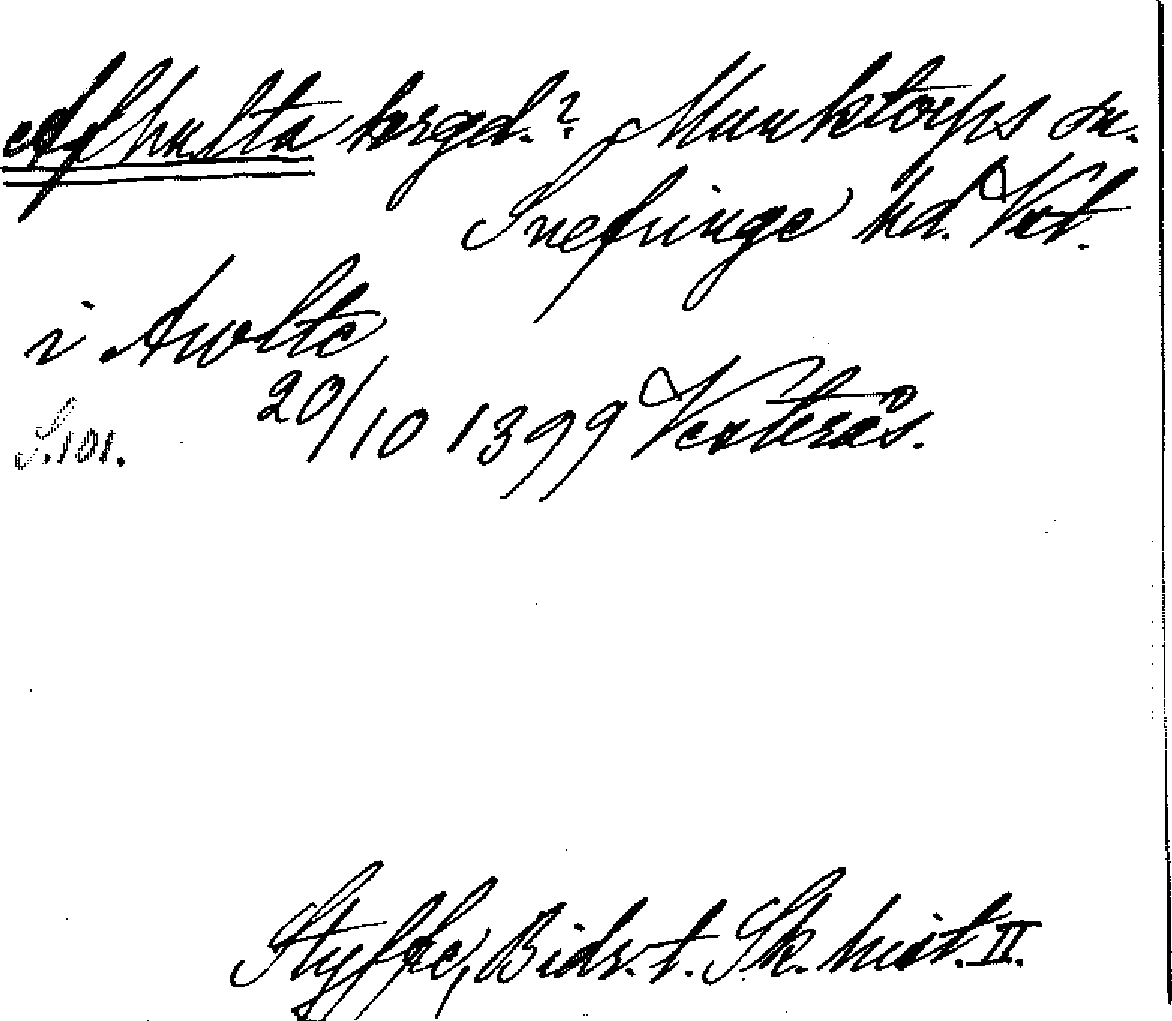 Afhulta hergd.? Munktorps sn.
Snefringe hd. Vstm.
i Awlte
20/10 1399 Västerås.
S. 101.
Styffe, Bidr. t. Sk. hist. II.